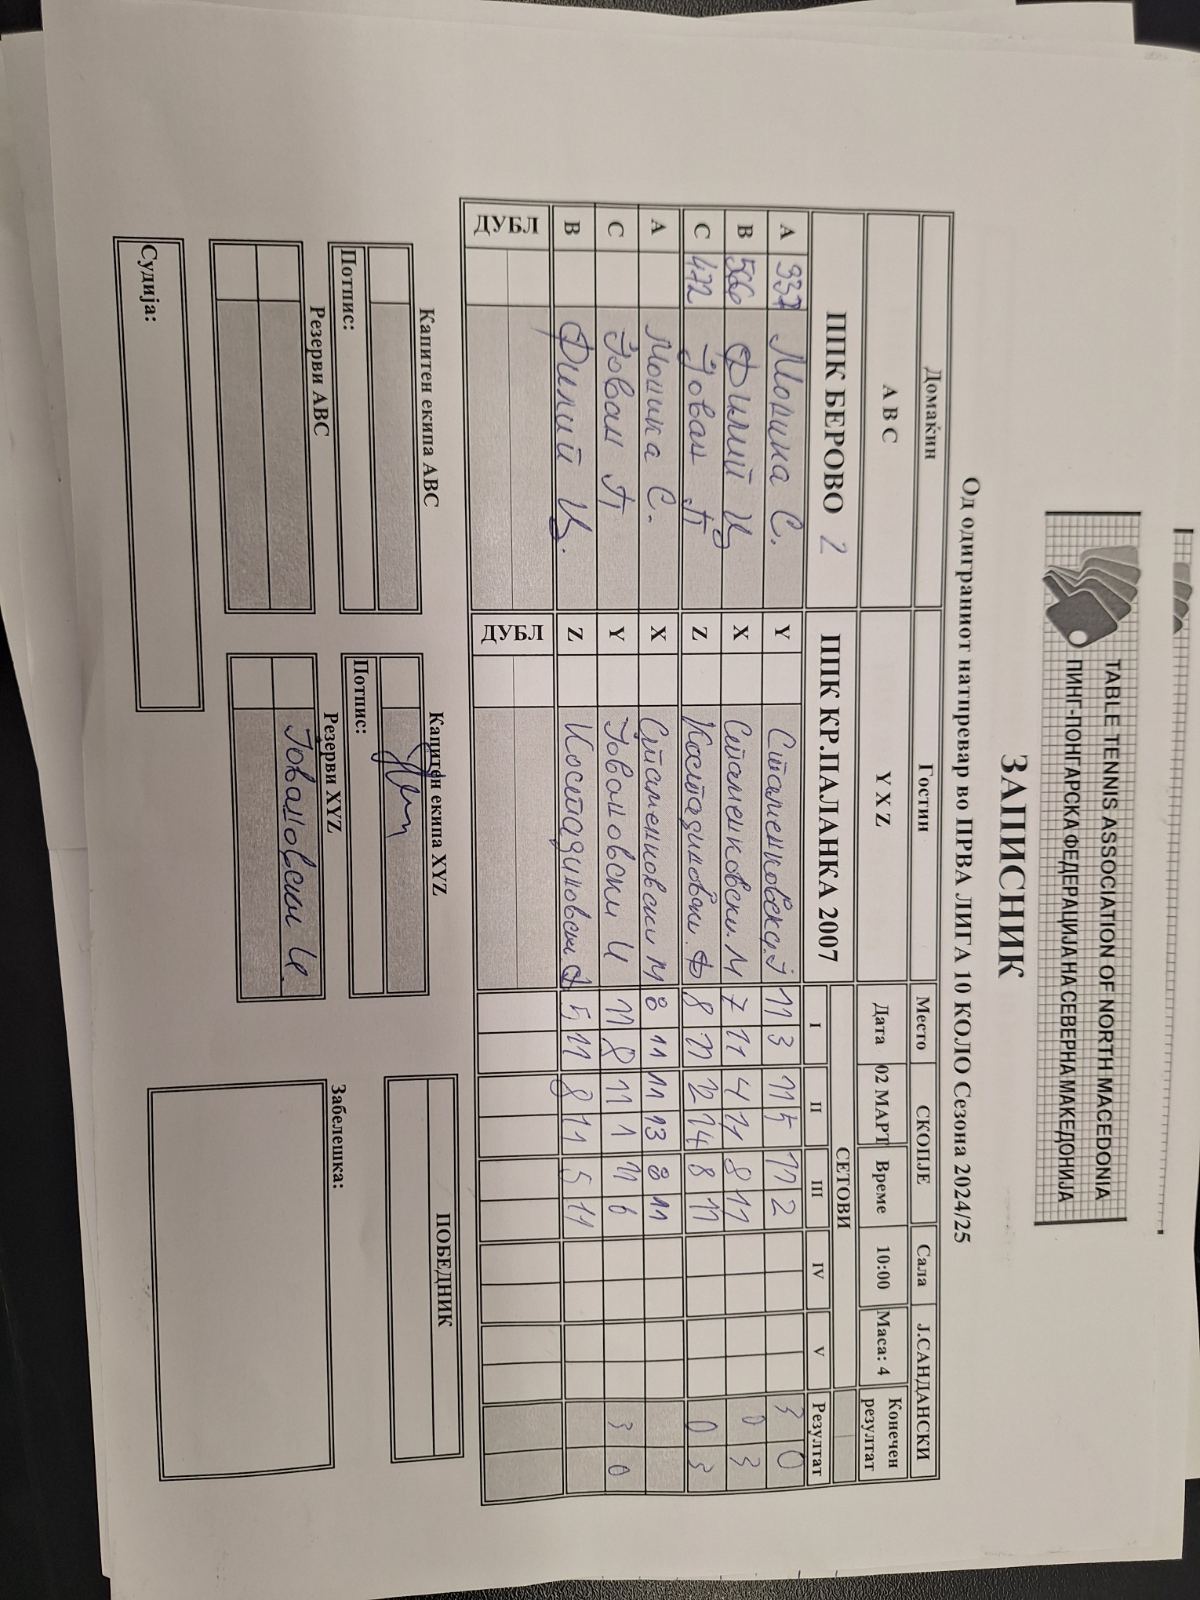 TABLE TENNIS ASSOCIATION OF NORTH MACEDONIA
ПИНГ-ПОНГАРСКА ФЕДЕРАЦИЈА НА СЕВЕРНА МАКЕДОНИЈА
ЗАПИСНИК
Од одиграниот натпревар во ПРВА ЛИГА 10 КОЛО Сезона 2024/25
Домаќин Гостин Место СКОПЈЕ Сала Ј.САНДАНСКИ
A B C Y X Z Дата 02 МАРТ Време 10:00 Маса: 4 Конечен резултат
ППК БЕРОВО 2 ППК КР.ПАЛАНКА 2007 СЕТОВИ
I II III IV V Резултат
A 337 Моника С. Y Стаменковска Ј 11 3 11 5 11 2 3 0
B 566 Филип Ц X Стаменковски М 7 11 4 11 8 11 0 3
C 472 Јован П Z Костадиновски Ф 8 11 12 14 8 11 0 3
A Моника С. X Стаменковски М 8 11 11 13 8 11
C Јован П Y Јовановски И 11 8 11 1 11 6 3 0
B Филип Ц. Z Костадиновски Ф 5 11 8 11 5 11
ДУБЛ ДУБЛ
Капитен екипа ABC Капитен екипа XYZ ПОБЕДНИК
Потпис: Потпис:
Резерви ABC Резерви XYZ Забелешка:
Јовановски И.
Судија: